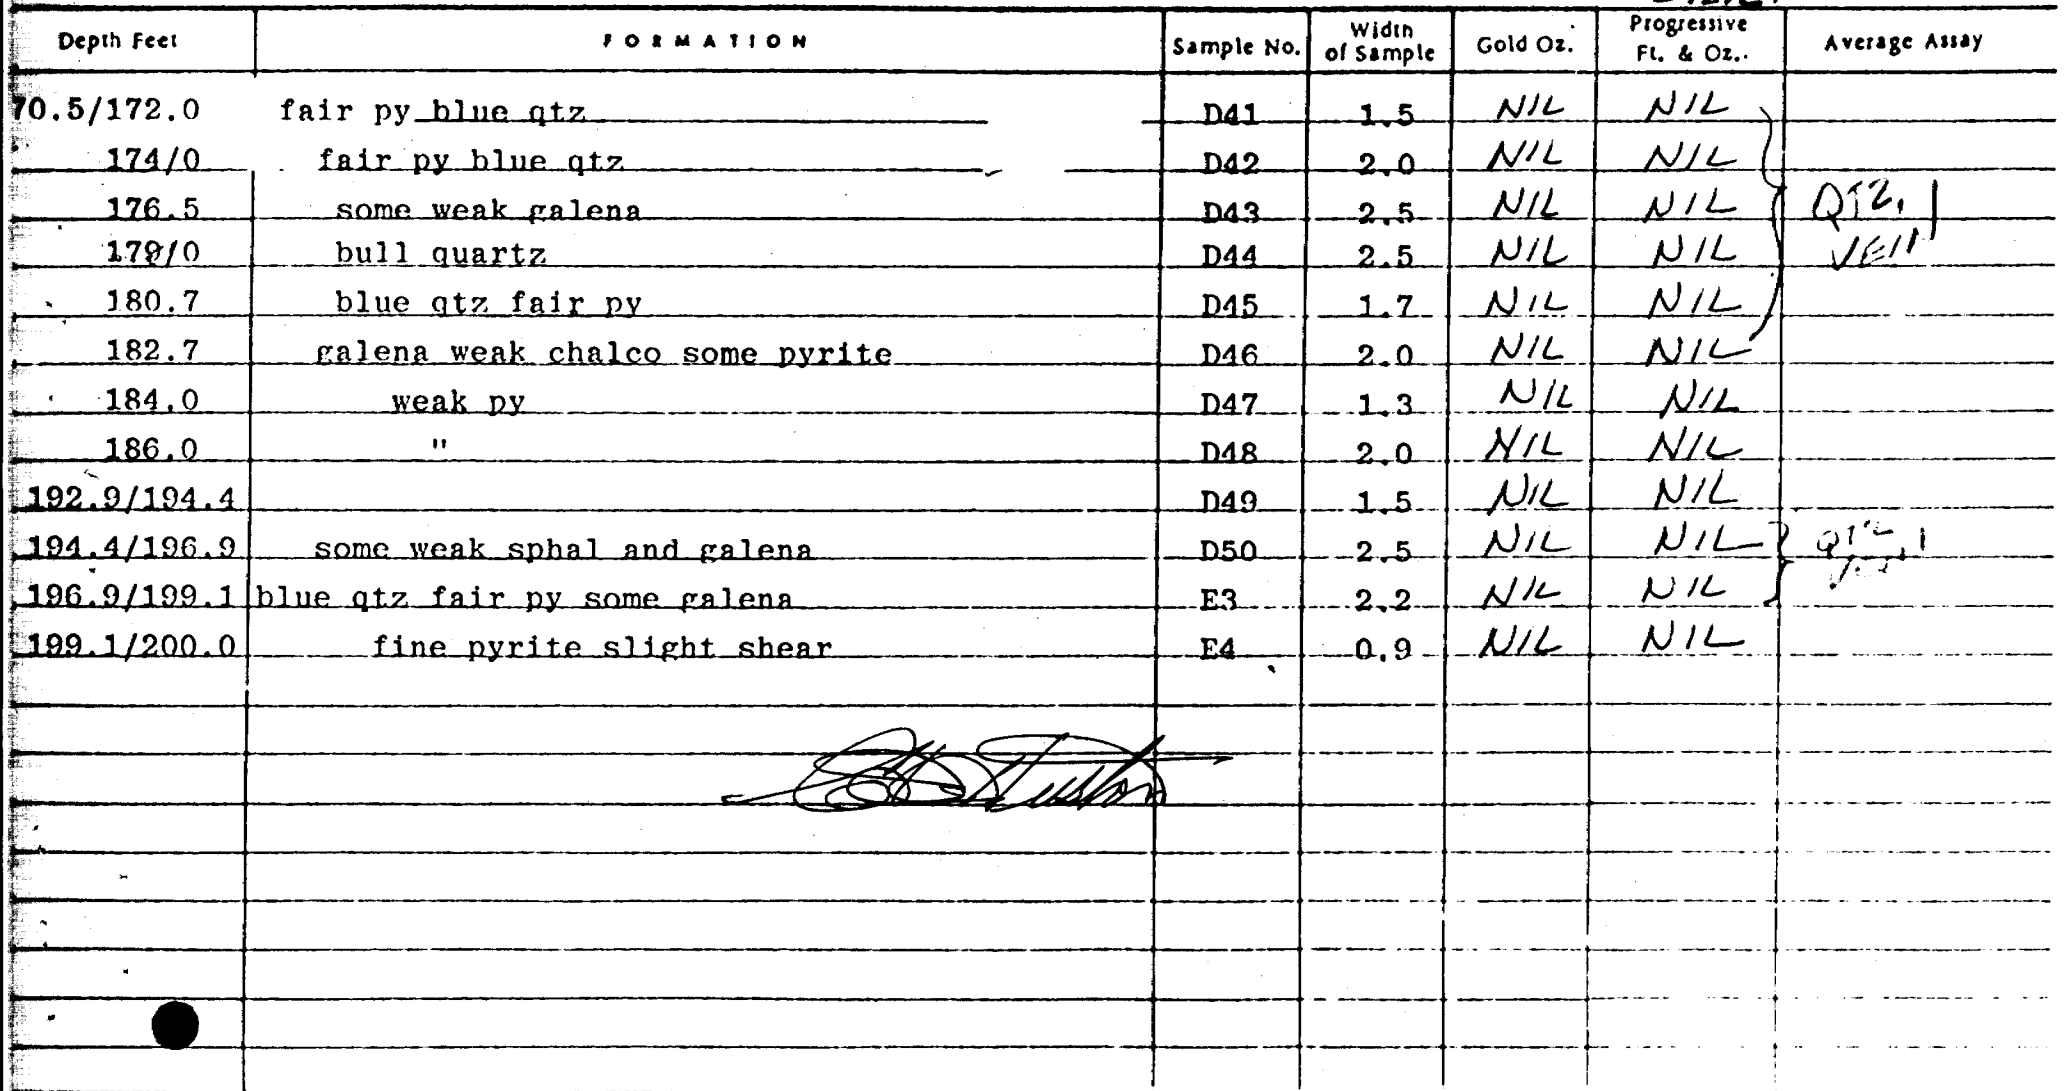 Depth Feet FORMATION Sample No. Width of Sample Gold Oz. Progressive Ft. & Oz. Average Assay
70.5/172.0 fair py blue qtz D41 1.5 NIL NIL
174/0 fair py blue qtz D42 2.0 NIL NIL
176.5 some weak galena D43 2.5 NIL NIL QTZ.
179/0 bull quartz D44 2.5 NIL NIL VEIN
180.7 blue qtz fair py D45 1.7 NIL NIL
182.7 galena weak chalco some pyrite D46 2.0 NIL NIL
184.0 weak py D47 1.3 NIL NIL
186.0 " D48 2.0 NIL NIL
192.9/194.4 D49 1.5 NIL NIL
194.4/196.9 some weak sphal and galena D50 2.5 NIL NIL QTZ
196.9/199.1 blue qtz fair py some galena E3 2.2 NIL NIL
199.1/200.0 fine pyrite slight shear E4 0.9 NIL NIL